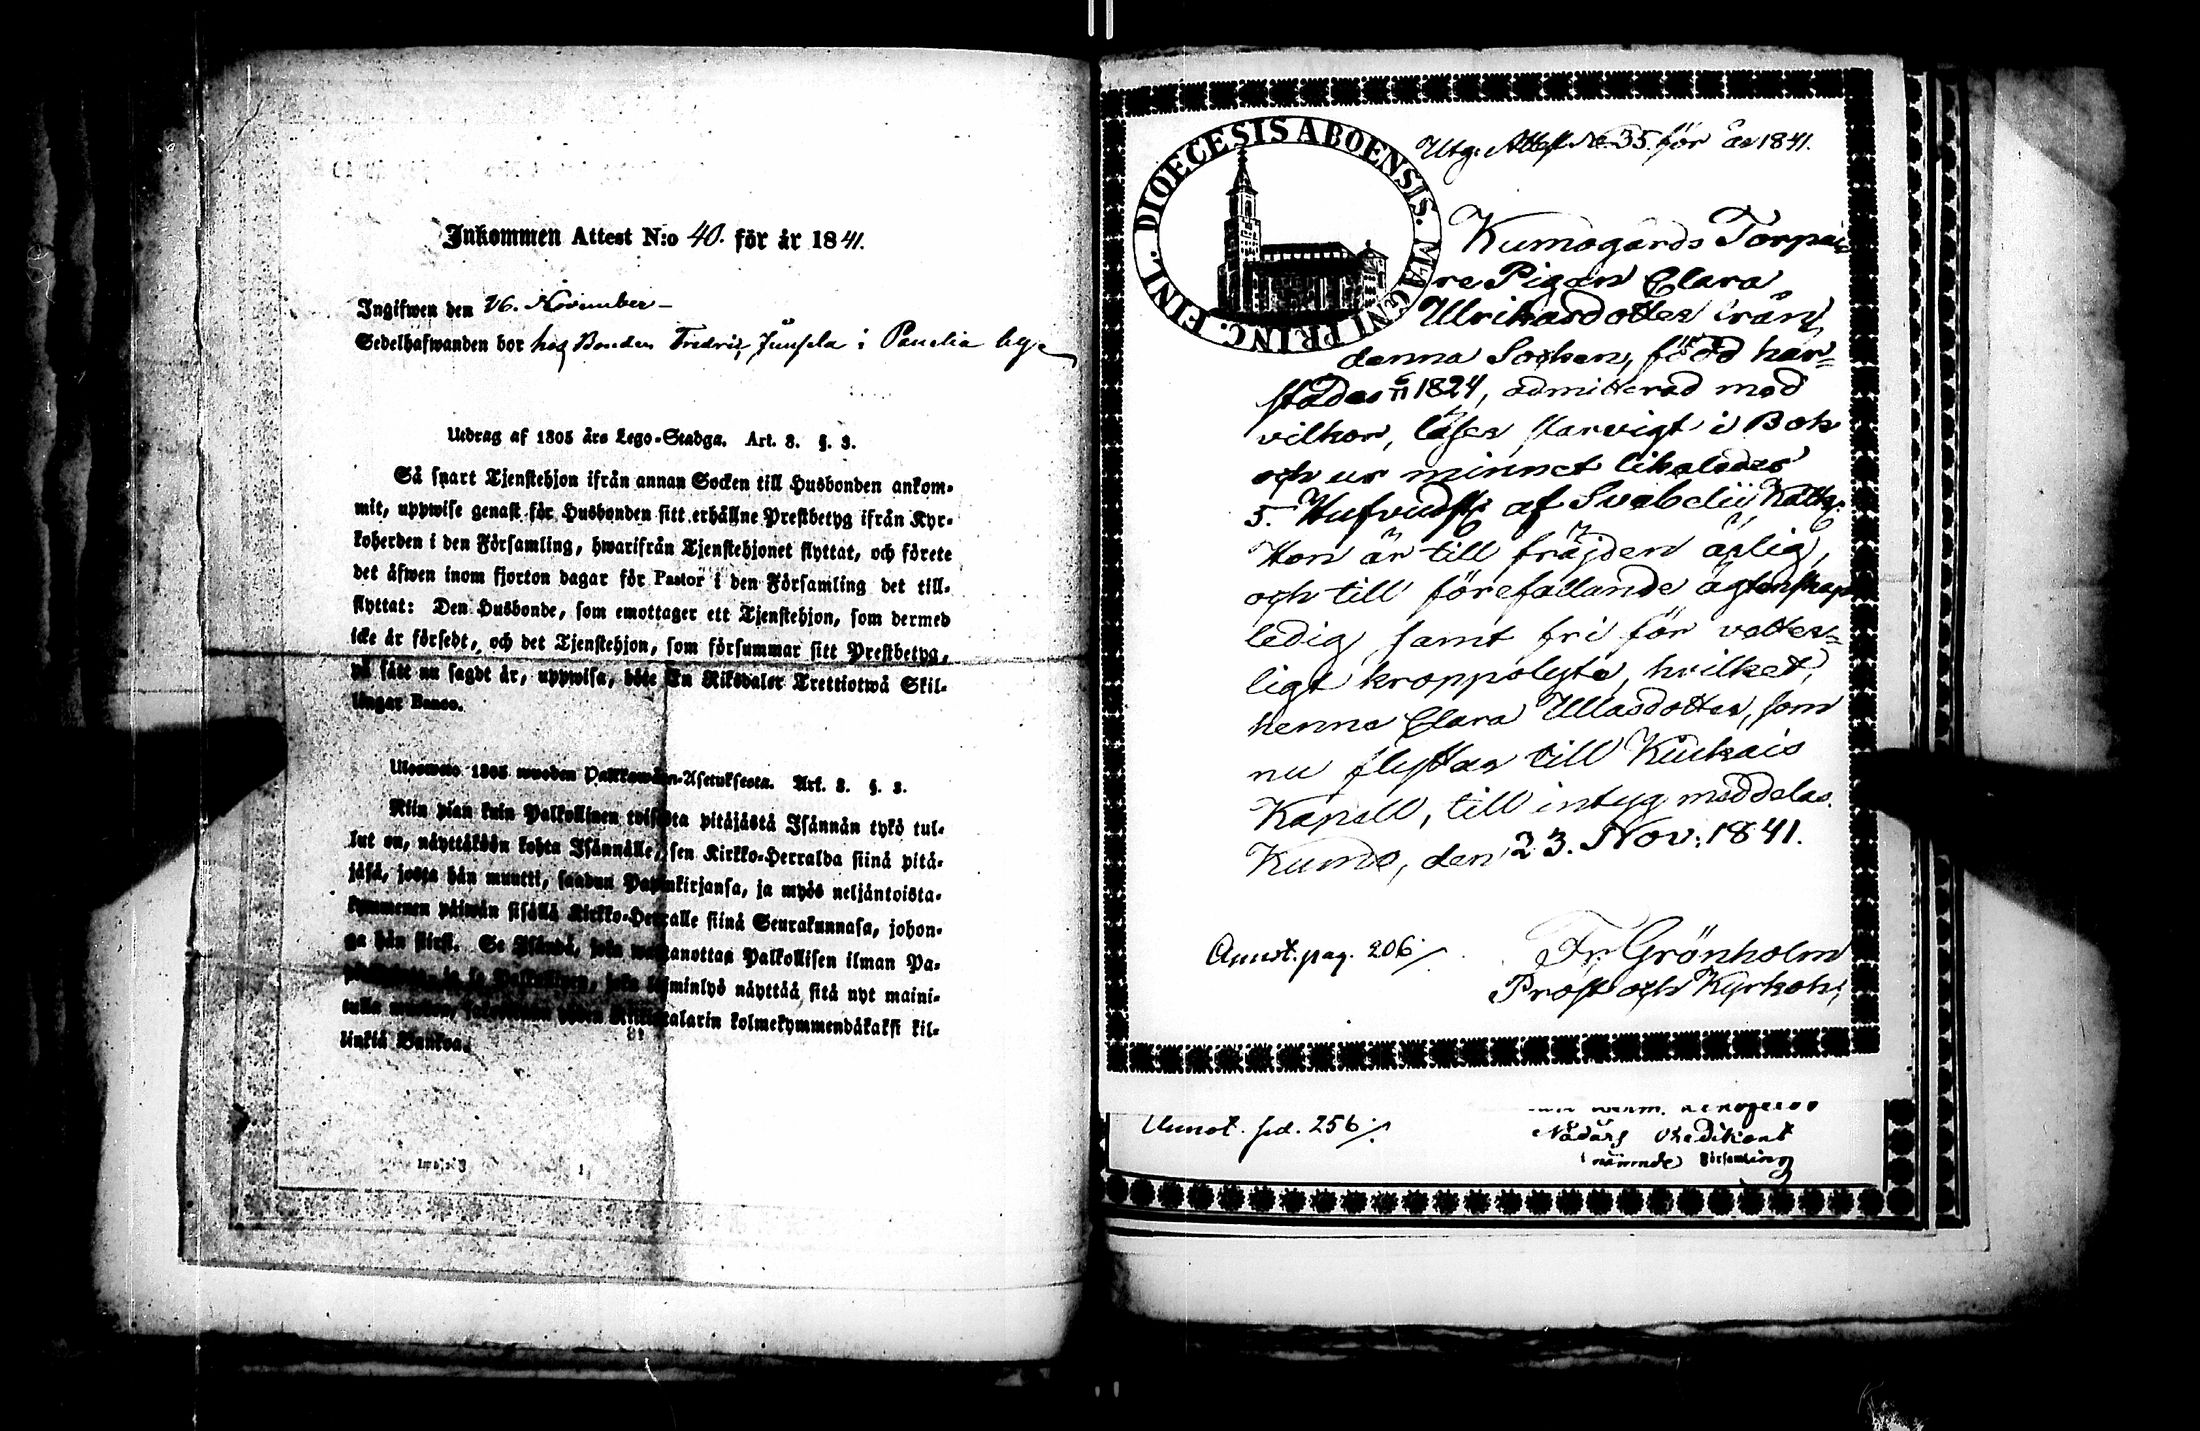 Inkommen Attest N:o 40. för år 1841.
Ingifwen den 26. November
Sedelhafwanden bor hos Bonden Fredric Juusela i Panelia by
Utdrag af 1805 års Lego-Stadga. Art. 3. §. 3.
Så snart Tjenstehjon ifrån annan Socken till Husbonden ankom-
mit, uppwise genast för Husbonden sitt erhållne Prestbetyg ifrån Kyr-
koherden i den Församling, hwarifrån Tjenstehjonet flyttat, och förete
det äfwen inom fjorton dagar för Pastor i den Församling det till-
flyttat: Den Husbonde, som emottager ett Tjenstehjon, som dermed
icke är försedt, och det Tjenstehjon, som försummar sitt Prestbetyg,
på sätt nu sagdt är, uppwisa, böte En Riksdaler Trettiotwå Skil-
lingar Banco.
1805 wuoden Palkkawäen-Asetuksesta. Art. 3. §. 3.
Niin pian kuin Palkollinen toisesta pitäjästä Isännän tykö tul-
lut on, näyttäköön kohta Isännälle, sen Kirkko-Herralda siinä pitä-
jäsä, josta hän muutti, saadun Papinkirjansa, ja myös neljäntoista-
kymmenen päiwän sisällä Kirkko-Herralle siinä Seurakunnasa, johon-
ga hän siirsi. Se Isändä, joka wastanottaa Palkollisen ilman Pa-
ja se Palkollinen, joka laiminlyö näyttää sitä nyt maini-
kolmekymmendäkaksi kil-
linkiä Bankoa.
DIOECESIS ABOENSIS. MAGNI PRINC. FINL.
Utg. Attest No 35. för år 1841.
Kumogårds Torpa-
re Pigan Clara
Ulrikasdotter från
denna Socken, född här-
städes 1824, admitterad med
vilkor, läser förs­varligt i Bok
och ur minnet likaledes
5. Hufvudst. af Svebelii Katkes.
Hon är till fräjden ärlig,
och till förefallande ägtenskap
ledig samt fri för vetter-
ligt kroppslyte, hvilket,
henne Clara Ullasdotter, som
nu flyttar till Kiukais
Kapell, till intyg meddelas.
Kumo, den 23. Nov: 1841.
Fr. Grönholm
Prost och Kyrkoh:
Annot. pag. 206
Annot. pag. 256
Nådårs Predikant
nämnde Församling